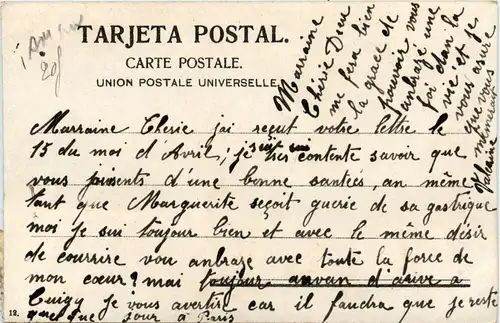 TARJETA POSTAL.
CARTE POSTALE.
UNION POSTALE UNIVERSELLE
Marraine
Cherie Dieu
me fera bien
la grace de
pouvoir vous
anbraze une
foi dan la
vie et je
vous assure
que vous
Marraine Cherie j'ai reçut votre lettre le
15 du moi d'Avril; je suit tres contente savoir que
vous d'une bonne santées, an même
tant que Marguerite seçoit guerie de sa gastrique
moi je sui toujour bien et avec le même désir
de courrire vou anbraze avec toute la force de
mon cœur? mai toujour anvan d'arive a
Cuigy je vous avertir car il faudra que je reste
que que jour a Paris
12.